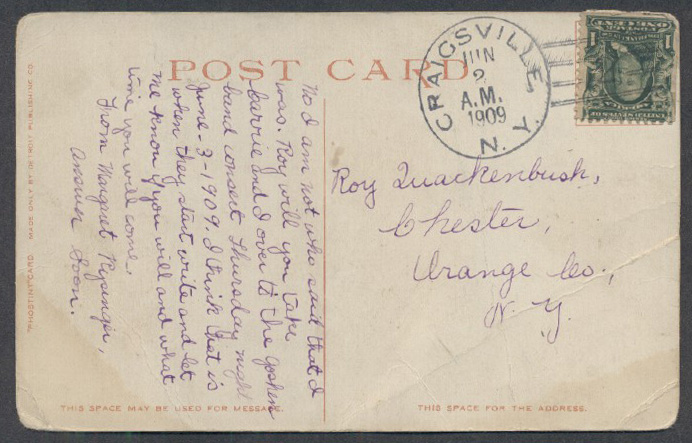 POST CARD
CRAIGSVILLE,
JUN
2
A.M.
1909
N. Y.
1
POSTAGE
ONE CENT
1
No I am not who said that I
was. Roy will you take
Carrie and I over to the Goshen
band consert Thursday night
June-3-1909. I think that is
when they start write and let
me know if you will and what
time you will come.
From Margaret
Answer Soon.
Roy Quackenbush,
Chester,
Orange Co.,
N. Y.
"PHOSTINT" CARD MADE ONLY BY DETROIT PUBLISHING CO.
THIS SPACE MAY BE USED FOR MESSAGE.
THIS SPACE FOR THE ADDRESS.